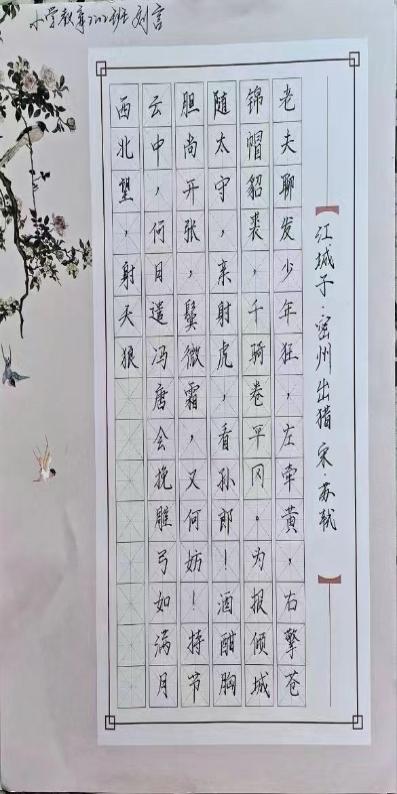 小学教育 班 刘言
江城子·密州出猎 宋·苏轼
老夫聊发少年狂，左牵黄，右擎苍
锦帽貂裘，千骑卷平冈。为报倾城
随太守，亲射虎，看孙郎！酒酣胸
胆尚开张，鬓微霜，又何妨！持节
云中，何日遣冯唐会挽雕弓如满月
西北望，射天狼